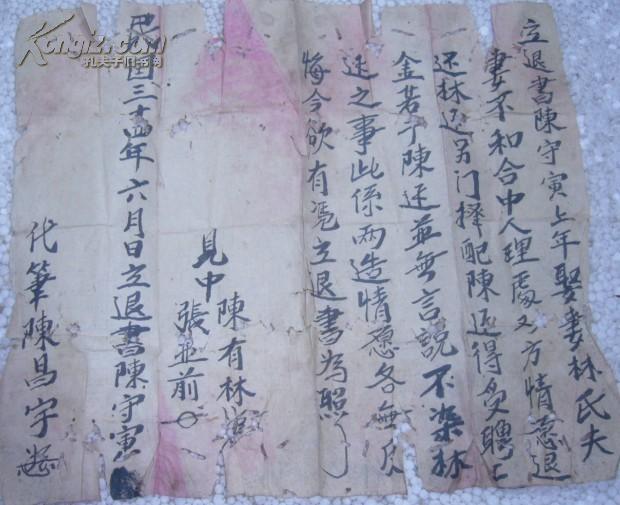 立退書陳守寅上年娶妻林氏夫
妻不和合中人理處又方情愿退
还林边另门择配陈边得受聘
金若干陳边並無言說不染林
边之事此係兩造情愿各無反
悔今欲有憑立退書為照
見中
陳有林
張並前
民國三十四年六月日立退書陳守寅
代筆陳昌宇
Kongfz.com
孔夫子旧书网